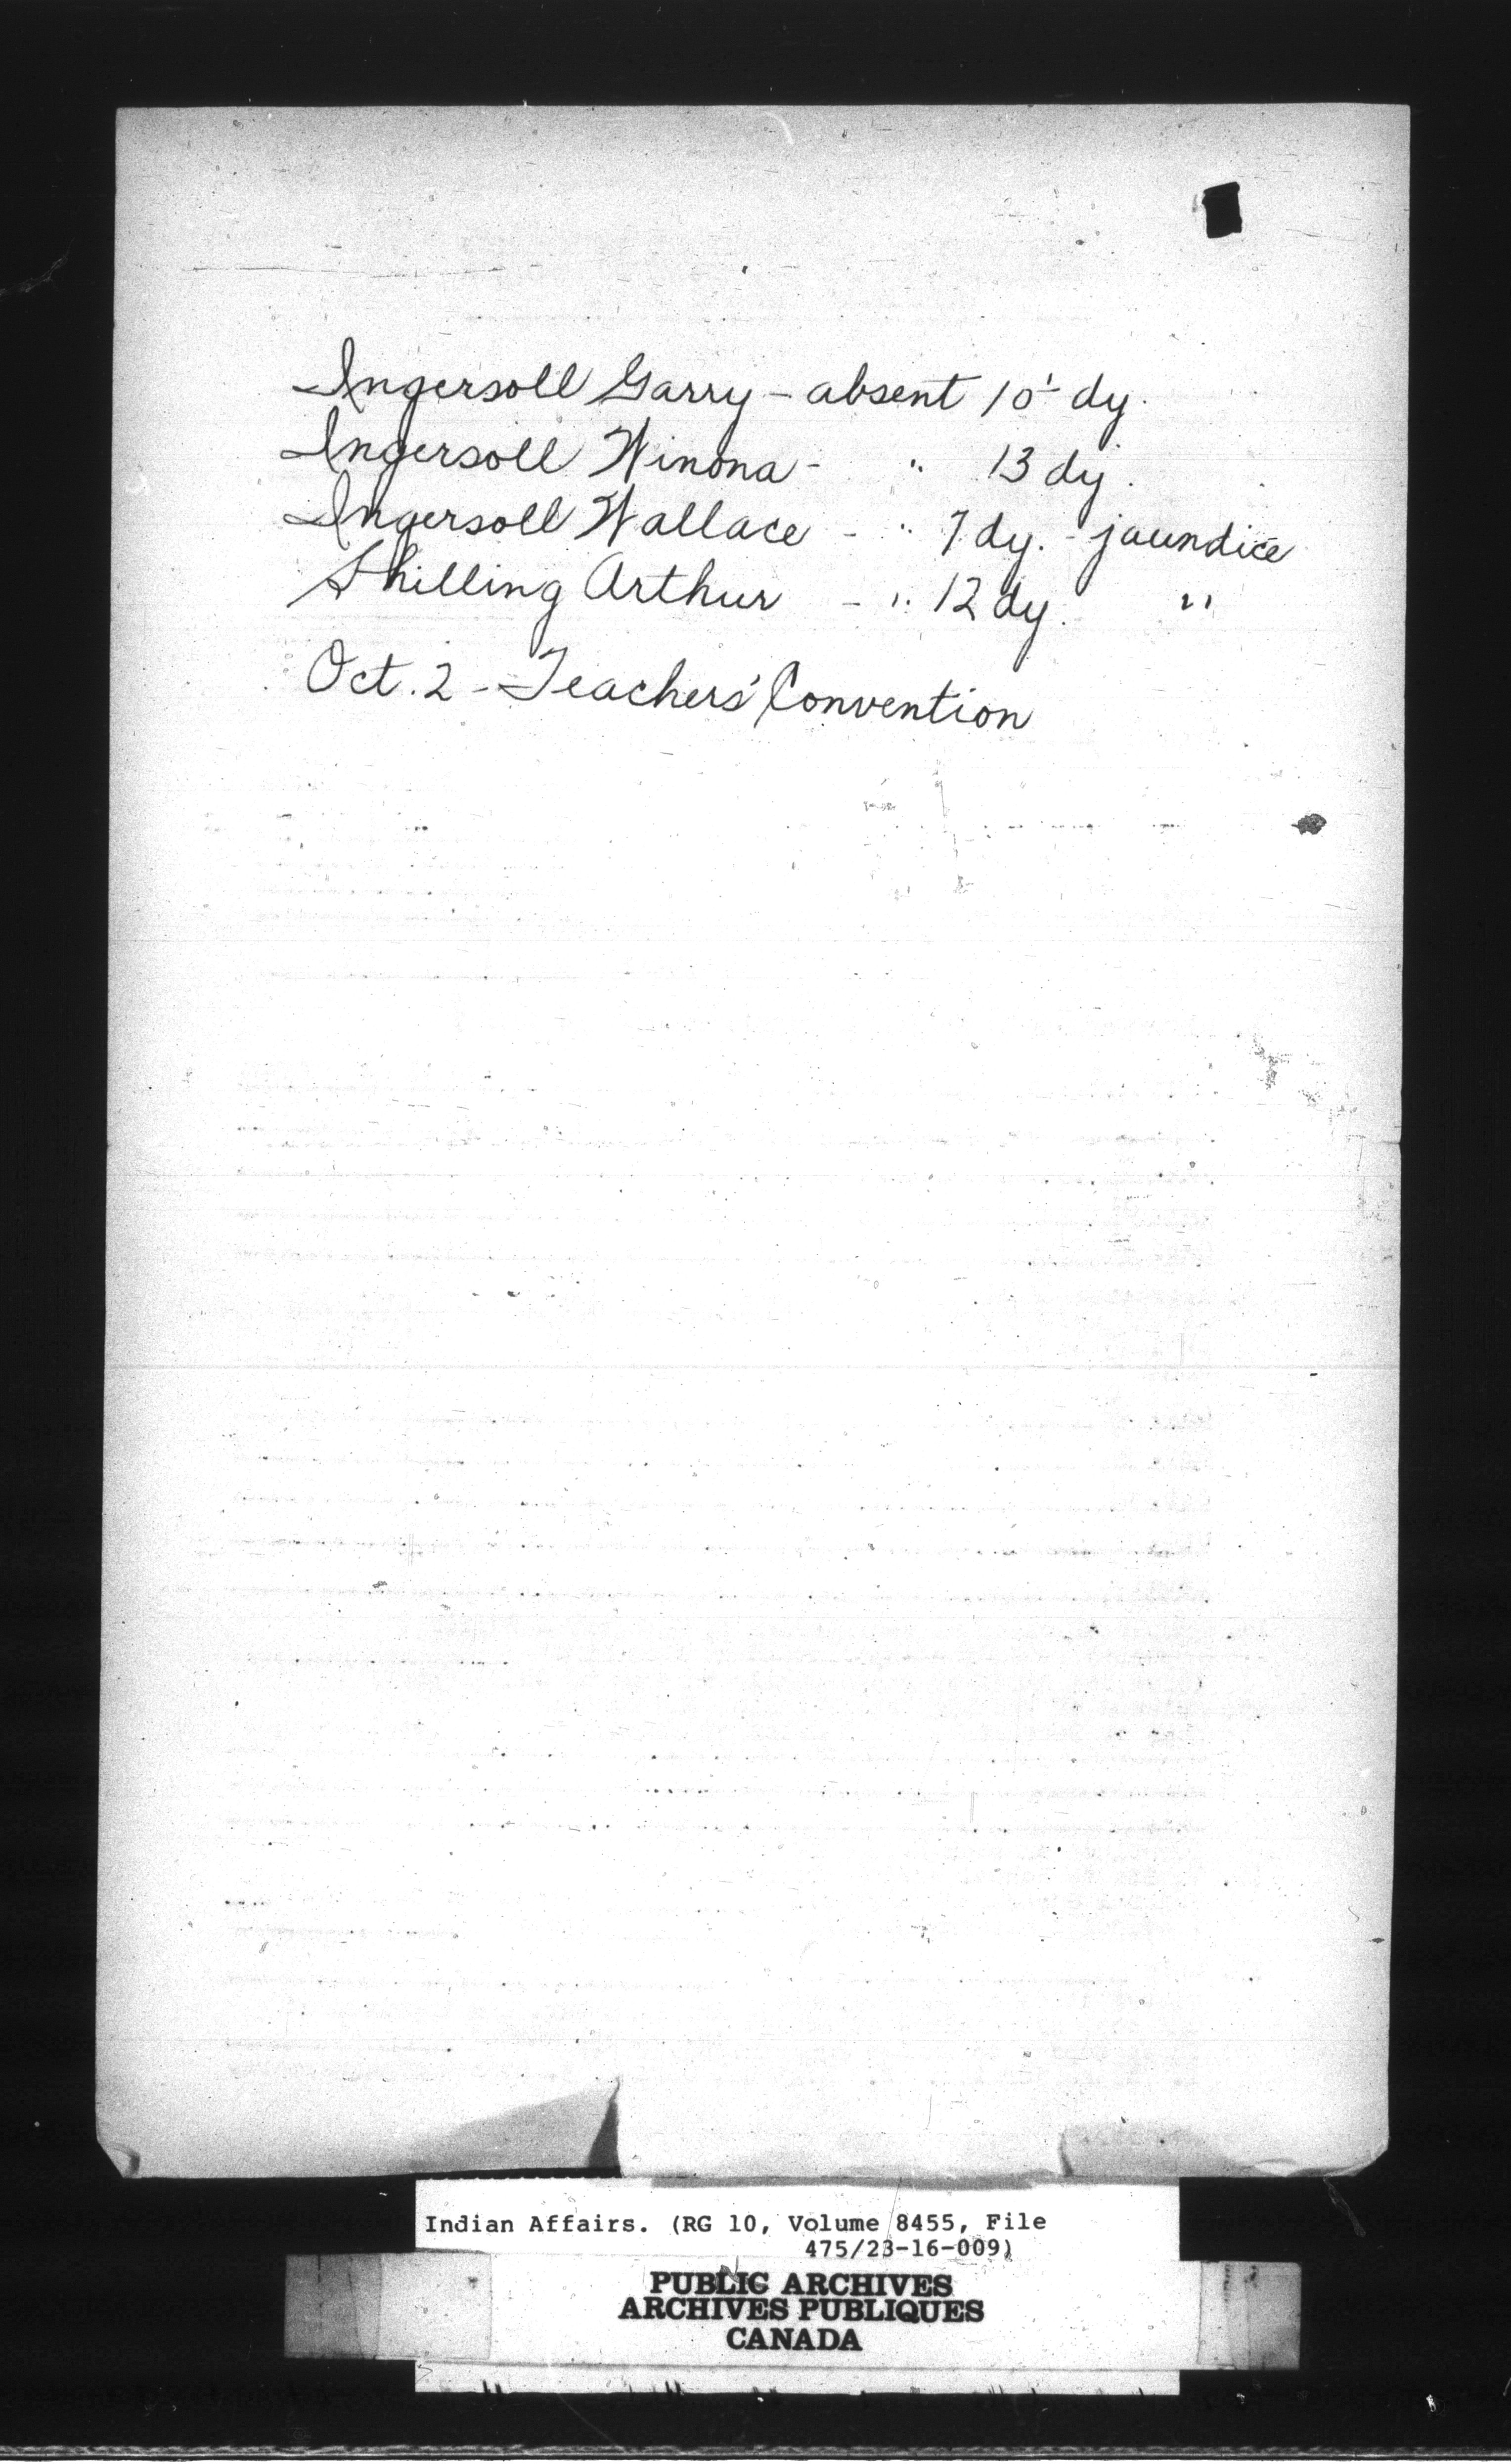 Ingersoll Garry - absent 10½ dy.
Ingersoll Winona - " 13 dy.
Ingersoll Wallace - " 7 dy. - jaundice
Shilling Arthur - " 12 dy. "
Oct. 2 - Teachers' Convention
Indian Affairs. (RG 10, Volume 8455, File
475/23-16-009)
PUBLIC ARCHIVES
ARCHIVES PUBLIQUES
CANADA